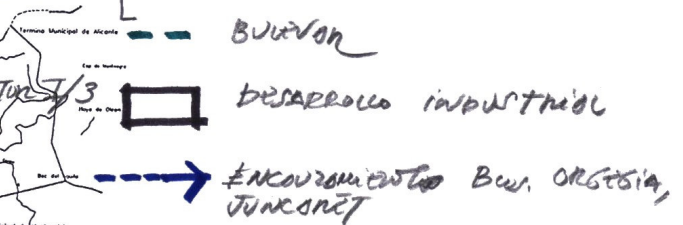 Termino Municipal de Alicante
BULEVAR
DESARROLLO INDUSTRIAL
ENCAUZAMIENTO BCOS. ORGEGIA,
JUNCARET